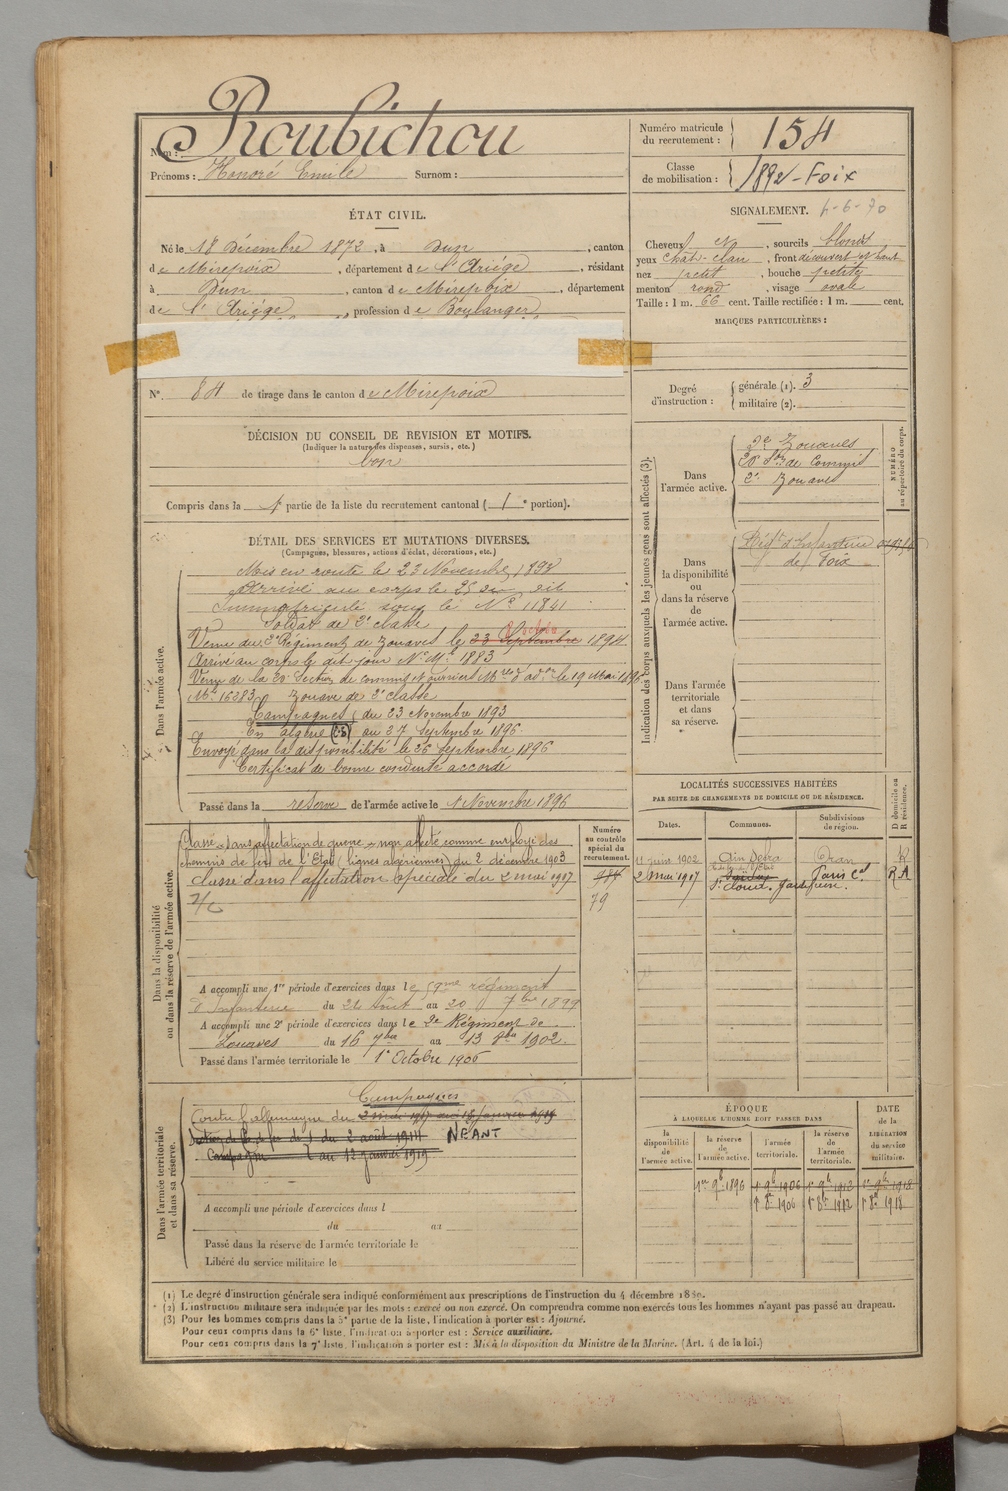 Nom : Roubichou
Prénoms : Honoré Emile Surnom :
Numéro matricule du recrutement : 154
Classe de mobilisation : 1892 - Foix
ÉTAT CIVIL.
Né le 18 Décembre 1872, à Dun, canton
de Mirepoix, département de l'Ariége, résidant
à Dun, canton de Mirepoix, département
de l'Ariége, profession de Boulanger
N° 84 de tirage dans le canton de Mirepoix
DÉCISION DU CONSEIL DE REVISION ET MOTIFS.
(Indiquer la nature des dispenses, sursis, etc.)
bon
Compris dans la 1e partie de la liste du recrutement cantonal ( 1e portion).
SIGNALEMENT. 4-6-70
Cheveux et , sourcils blonds
yeux chat-clair , front découvert et haut
nez petit , bouche petite
menton rond , visage ovale
Taille : 1 m. 66 cent. Taille rectifiée : 1 m. cent.
MARQUES PARTICULIÈRES :
Degré d'instruction :
générale (1). 3
militaire (2).
Indication des corps auxquels les jeunes gens sont affectés (3).
NUMÉRO au répertoire du corps.
Dans l'armée active.
3e Zouaves
20e Son de Commis
2e Zouaves
Dans la disponibilité ou dans la réserve de l'armée active.
Régt d'Infanterie
de Foix
Dans l'armée territoriale et dans sa réserve.
DÉTAIL DES SERVICES ET MUTATIONS DIVERSES.
(Campagnes, blessures, actions d'éclat, décorations, etc.)
Dans l'armée active.
Mis en route le 23 Novembre 1893
Arrivé au corps le 25 du dit
Immatriculé sous le N° 11841
Soldat de 2e classe
Venu du 3e Régiment de Zouaves le 23 Septembre 1894.
Octobre
Arrivé au corps le dit jour N° Mle 1883
Venu de la 20e Section de commis et ouvriers Mres d'adon le 19 Mai 1896
Mle 16383 Zouave de 2e classe
Campagnes du 23 Novembre 1893
En algérie au 27 Septembre 1896.
Envoyé dans la disponibilité le 26 Septembre 1896
Certificat de bonne conduite accordé
Passé dans la réserve de l'armée active le 1 Novembre 1896
LOCALITÉS SUCCESSIVES HABITÉES
PAR SUITE DE CHANGEMENTS DE DOMICILE OU DE RÉSIDENCE.
Dates. Communes. Subdivisions de région. D domicile ou R résidence.
11 Juin 1902 Ain Sefra Oran R
2 mai 1917 St Cloud. Paris Cal R A
Dans la disponibilité ou dans la réserve de l'armée active.
Numéro au contrôle spécial du recrutement.
Classé "sans affectation" de guerre "non affecté" comme employé des
chemins de fer de l'Etat (lignes algériennes) du 2 décembre 1903
Classé dans l'affectation spéciale du 2 mai 1917
79
A accompli une 1re période d'exercices dans le 59me régiment
d'Infanterie du 24 Août au 20 7bre 1899
A accompli une 2e période d'exercices dans le 2e Régiment de
Zouaves du 16 7bre au 13 8bre 1902.
Passé dans l'armée territoriale le 1er Octobre 1906
Dans l'armée territoriale et dans sa réserve.
Campagnes
Contre l'allemagne du 2 mai 1917 au 12 Janvier 1919
Section de Ch. de fer de C du 2 août 1914 NÉANT
Campagne au 12 janvier 1919
A accompli une période d'exercices dans l
du au
Passé dans la réserve de l'armée territoriale le
Libéré du service militaire le
ÉPOQUE
À LAQUELLE L'HOMME DOIT PASSER DANS
la disponibilité de l'armée active. la réserve de l'armée active. l'armée territoriale. la réserve de l'armée territoriale.
DATE de la LIBÉRATION du service militaire.
1er 9b 1896 1er 9b 1906 1er 9b 1912 1er 9b 1918
1er 8b 1906 1er 8b 1912 1er 8b 1918
(1) Le degré d'instruction générale sera indiqué conformément aux prescriptions de l'instruction du 4 décembre 1889.
(2) L'instruction militaire sera indiquée par les mots : exercé ou non exercé. On comprendra comme non exercés tous les hommes n'ayant pas passé au drapeau.
(3) Pour les hommes compris dans la 5e partie de la liste, l'indication à porter est : Ajourné.
Pour ceux compris dans la 6e liste, l'indication à porter est : Service auxiliaire.
Pour ceux compris dans la 7e liste, l'indication à porter est : Mis à la disposition du Ministre de la Marine. (Art. 4 de la loi.)